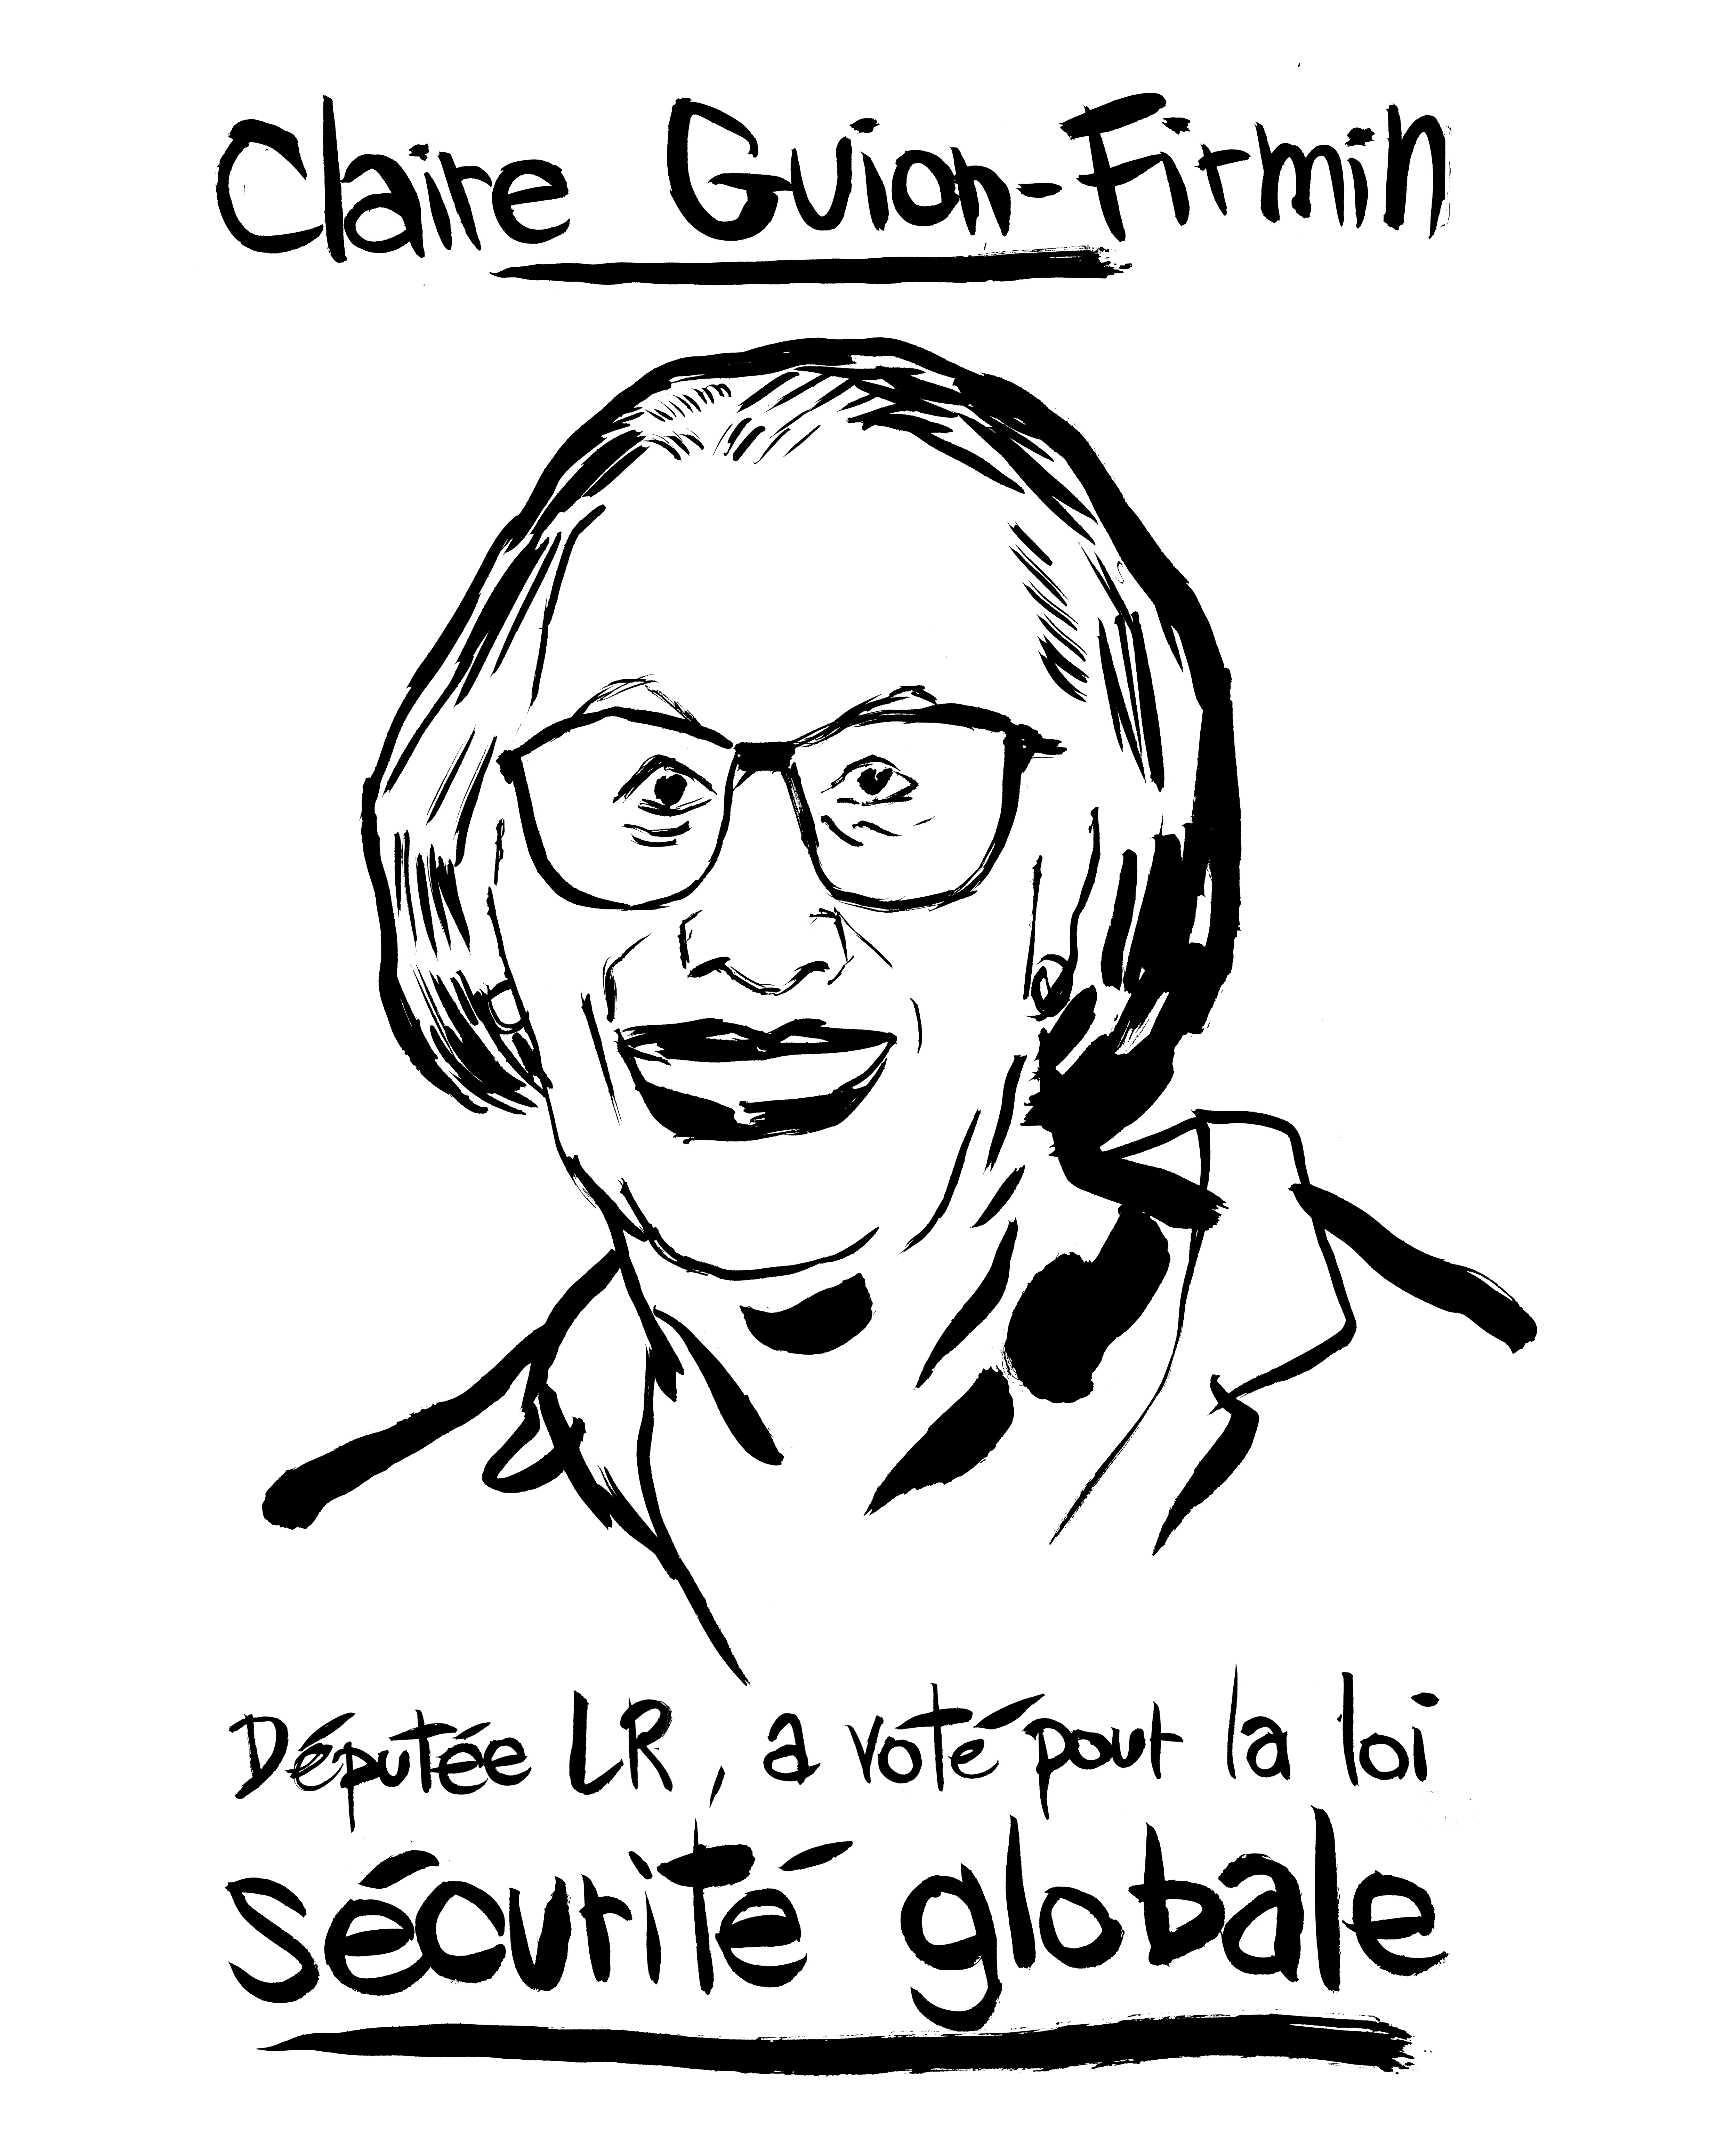 Claire Guion-Firmin
Députée LR, a voté pour la loi
sécurité globale